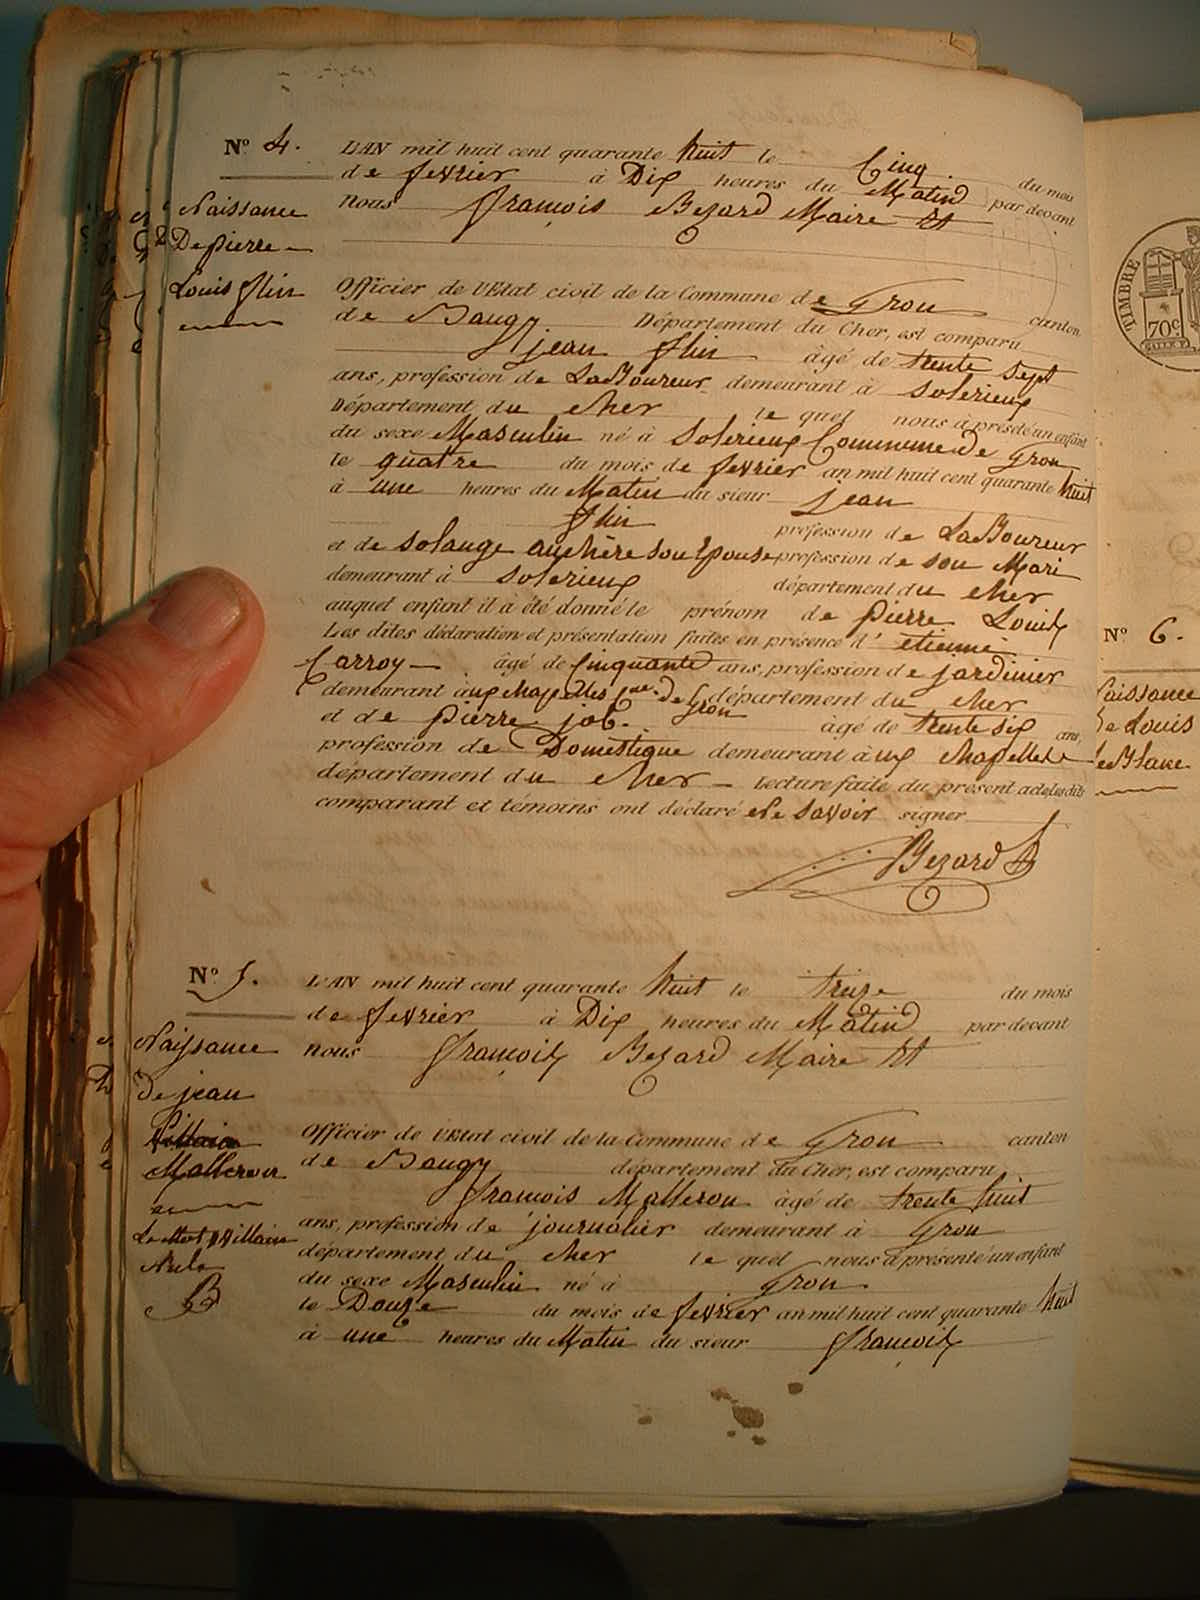 N.º 4. L'AN mil huit cent quarante huit le Cinq du mois
de fevrier à Dix heures du Matin par devant
Naissance nous francois Bezard Maire Et
De pierre
Louis flin Officier de l'Etat civil de la Commune de Gron canton
de Baugy Département du Cher, est comparu
jean flin âgé de trente sept
ans, profession de LaBoureur demeurant à Solerieux
Département du cher le quel nous à présété un enfant
du sexe Masculin né à Solerieux Commune De Gron
le quatre du mois de fevrier an mil huit cent quarante huit
à une heures du Matin du sieur jean
flin profession de LaBoureur
et de solange auchère son Epouse profession de son Mari
demeurant à solerieux département du cher
auquel enfant il à été donné le prénom de pierre Louis
Les dites déclaration et présentation faites en présence d' etienne
Carroy âgé de Cinquante ans, profession de jardinier
demeurant à ux chapelles Cne. de Gron département du cher
et de pierre job. âgé de trente six ans,
profession de Domestique demeurant à ux chapelles
département du cher Lecture faite du présent acte, les dits
comparant et témoins ont déclaré Ne savoir signer
Bezard
N.º 5. L'AN mil huit cent quarante huit le treize du mois
de fevrier à Dix heures du Matin par devant
Naissance nous francois Bezard Maire Et
De jean
Villain Officier de l'Etat civil de la Commune de Gron canton
Malleron de Baugy département du Cher, est comparu
francois Malleron âgé de trente huit
Le Mot Villain ans, profession de journalier demeurant à Gron
Nul département du cher le quel nous à présenté un enfant
B du sexe Masculin né à Gron
le Douze du mois de fevrier an mil huit cent quarante huit
à une heures du Matin du sieur francois
TIMBRE
70c
N.º 6.
Naissance
De Louis